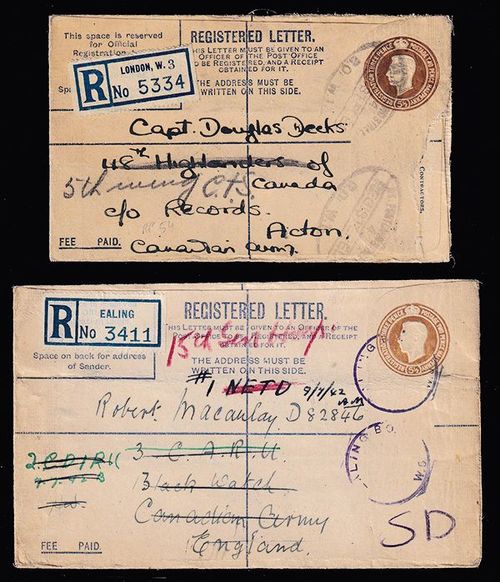 This space is reserved
for Official
Registration
REGISTERED LETTER.
THIS LETTER MUST BE GIVEN TO AN
OFFICER OF THE POST OFFICE
TO BE REGISTERED, AND A RECEIPT
OBTAINED FOR IT.
THE ADDRESS MUST BE
WRITTEN ON THIS SIDE.
R
LONDON, W.3
No 5334
Capt. Douglas Beeks
48th Highlanders of
5th wing C.T.S.
Canada
c/o Records.
Acton.
FEE PAID.
Canadian Army
CONTRACTORS.
R
EALING
No 3411
REGISTERED LETTER.
THIS LETTER MUST BE GIVEN TO AN OFFICER OF THE
POST OFFICE TO BE REGISTERED, AND A RECEIPT
OBTAINED FOR IT.
15th Gen Hosp
Space on back for address
of Sender.
THE ADDRESS MUST BE
WRITTEN ON THIS SIDE.
#1 NETD 9/7/42
Robert Macaulay D82846
3 C.A.R.U.
Black Watch
Canadian Army
England.
SD
EALING BO.
W.5
FEE PAID.